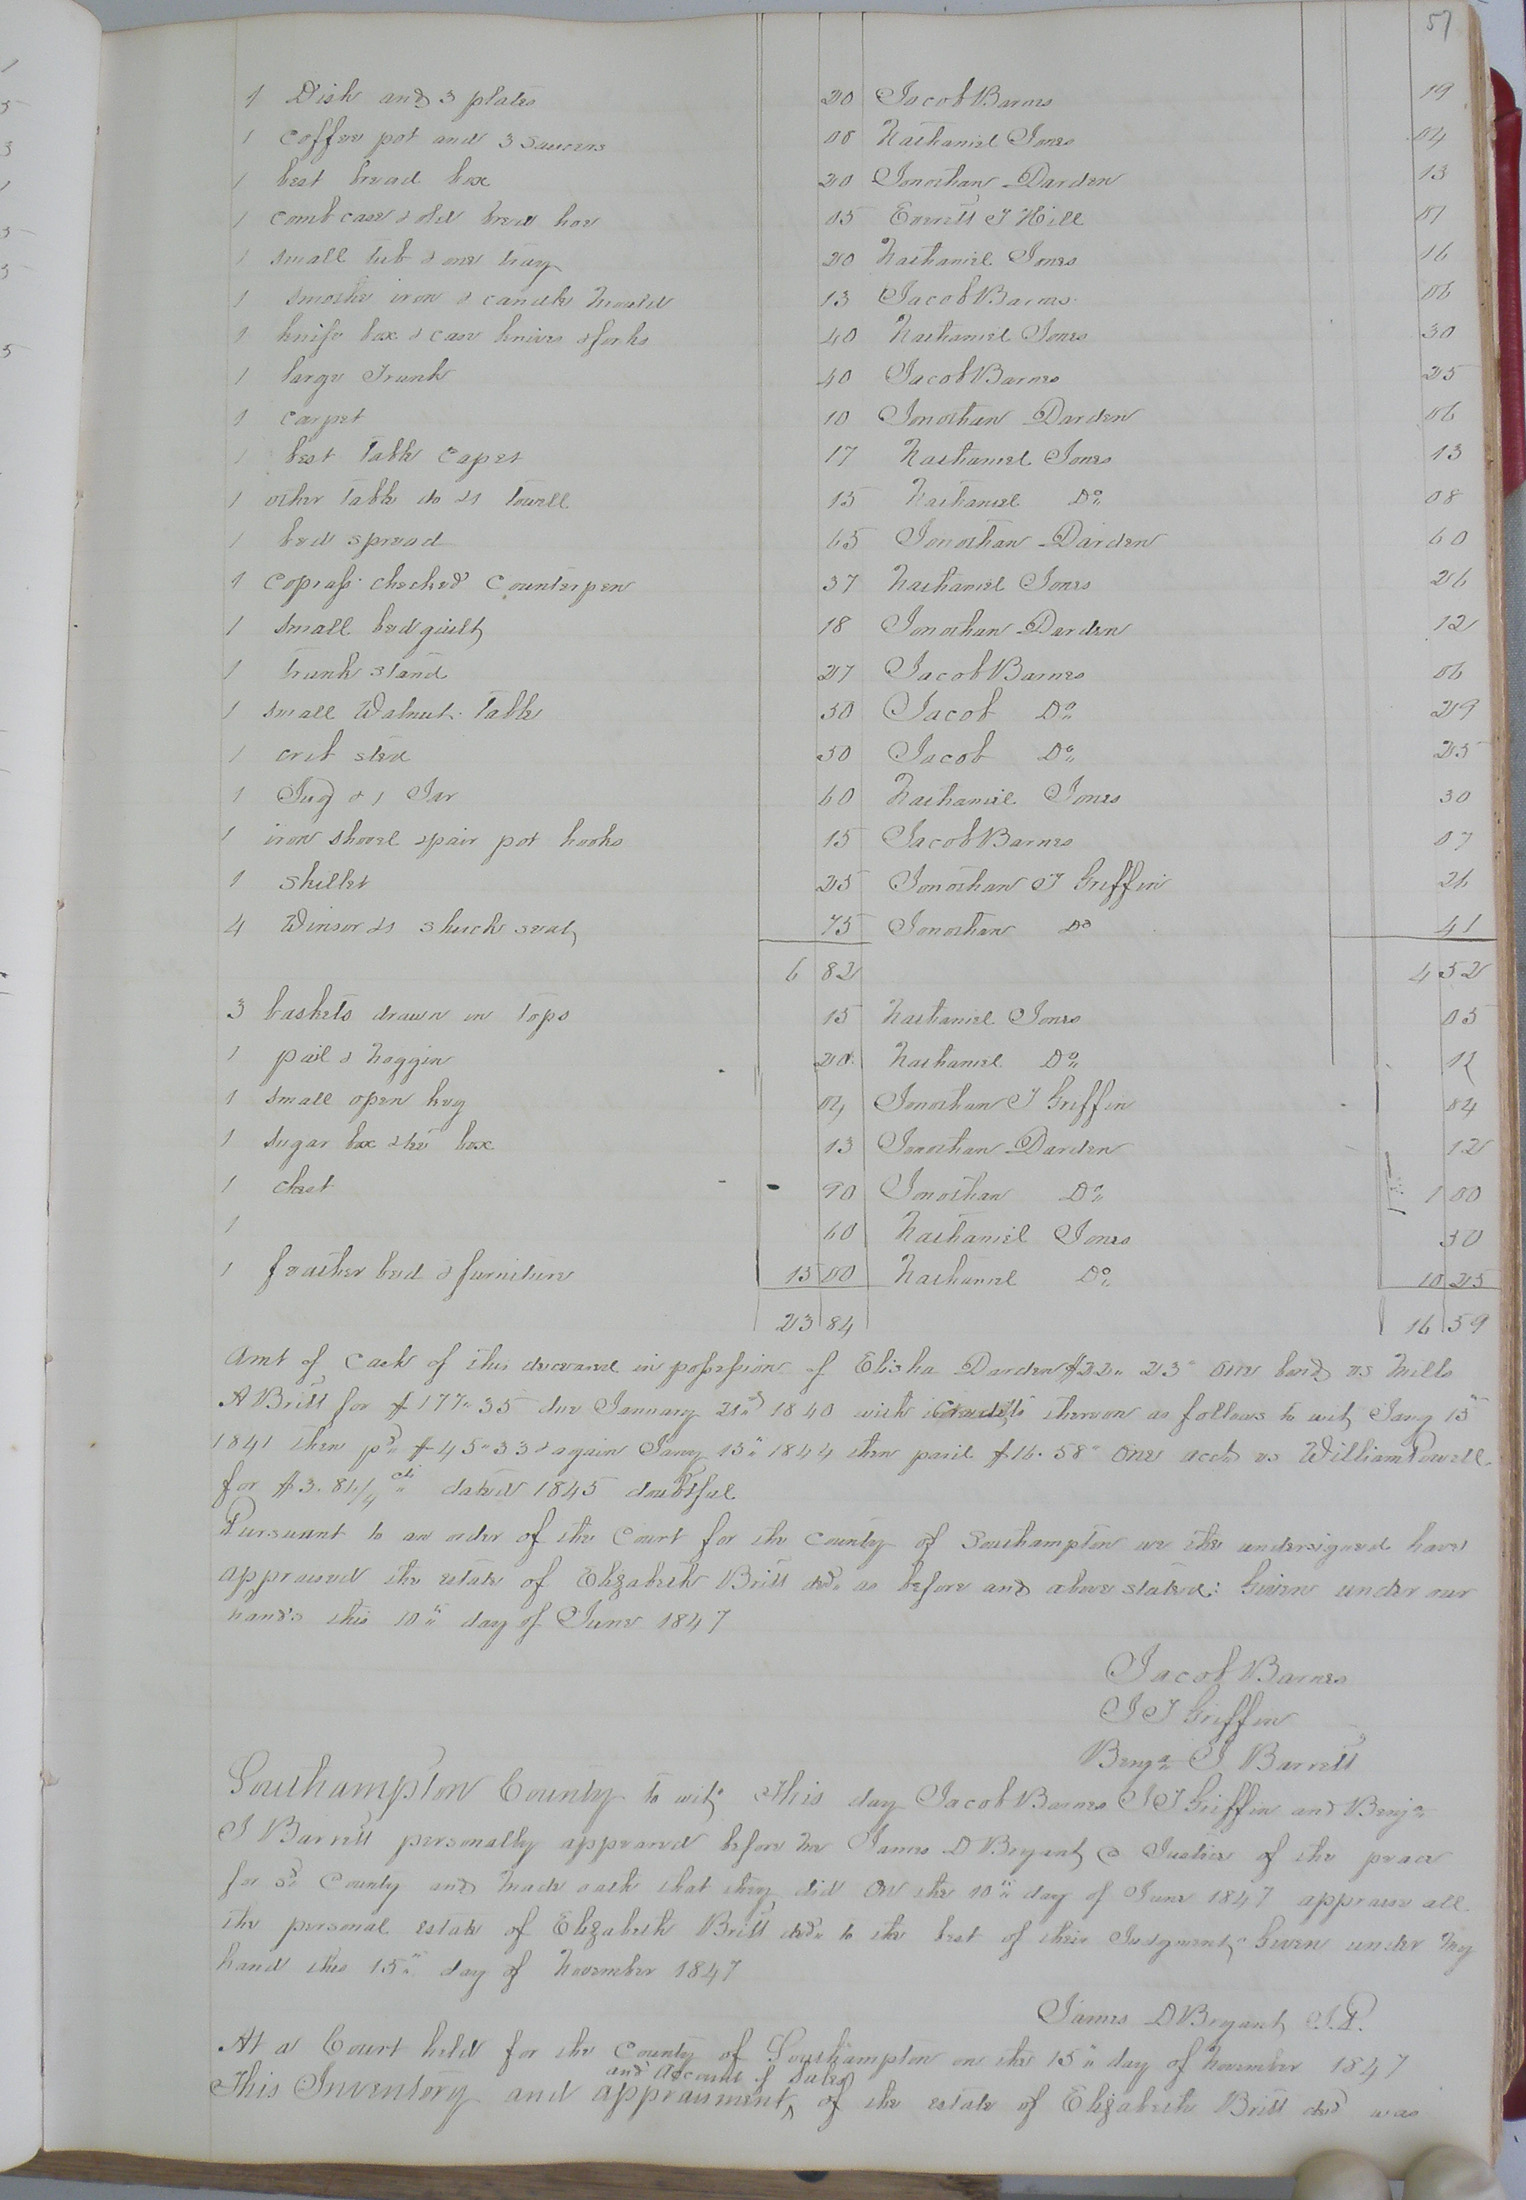 57
1 Dish and 3 plates 20 Jacob Barnes 19
1 coffee pot and 3 saucers 06 Nathaniel Jones 04
1 best bread box 20 Jonothan Darden 13
1 comb case & old bread hoe 05 Everett J Hill 01
1 small tub & one tray 20 Nathaniel Jones 16
1 smothe iron & candle mould 13 Jacob Barnes 06
1 knife box & case knives & forks 40 Nathaniel Jones 30
1 large Trunk 40 Jacob Barnes 25
1 carpet 10 Jonothan Darden 06
1 best Table Capet 17 Nathaniel Jones 13
1 other Table do &1 Towell 15 Nathaniel Do 08
1 bed spread 65 Jonothan Darden 60
1 Coprass checked Counterpen 37 Nathaniel Jones 26
1 small bed quilt 18 Jonothan Darden 12
1 Trunk stand 27 Jacob Barnes 06
1 small Walnut Table 30 Jacob Do 29
1 crib sted 50 Jacob Do 25
1 Jug & 1 Jar 60 Nathaniel Jones 30
1 iron shovel & pair pot hooks 15 Jacob Barnes 07
1 skillet 25 Jonothan J Griffin 26
4 Winsor &1 shuck seat 75 Jonothan Do 41
6 82 4 52
3 baskets drawn in tops 15 Nathaniel Jones 05
1 pail & noggin 20 Nathaniel Do
1 small open keg 04 Jonothan J Griffin 04
1 sugar box & tea box 13 Jonothan Darden 12
1 chest 90 Jonothan Do 1 00
1 60 Nathaniel Jones 50
1 feather bed & furniture 15 00 Nathaniel Do 10 25
23 84 16 59
Amt of Cash of this deceased in possession of Elisha Darden $22.23 One bond vs Mills
A Britt for $177.35 due January 21st 1840 with credits thereon as follows to wit Jany 15th
1841 then pd $45.33 & again Jany 15th 1844 then paid $16.58 One acct vs William Powell
for $3.81 1/4 cts dated 1845 doubtful
Pursuant to an order of the Court for the County of Southampton we the undersigned have
appraised the estate of Elizabeth Britt decd as before and above stated: Given under our
hands this 10th day of June 1847
Jacob Barnes
J J Griffin
Benja J Barrett
Southampton County to wit. This day Jacob Barnes J J Griffin and Benja
J Barrett personally appeared before me James D Bryant a Justice of the peace
for sd County and made oath that they did on the 10th day of June 1847 appraise all
the personal estate of Elizabeth Britt decd to the best of their Judgment. Given under my
hand this 15th day of November 1847
James D Bryant J.P.
At a Court held for the County of Southampton on the 15th day of November 1847
and Account of Sales
This Inventory and appraisment ^ of the estate of Elizabeth Britt decd was